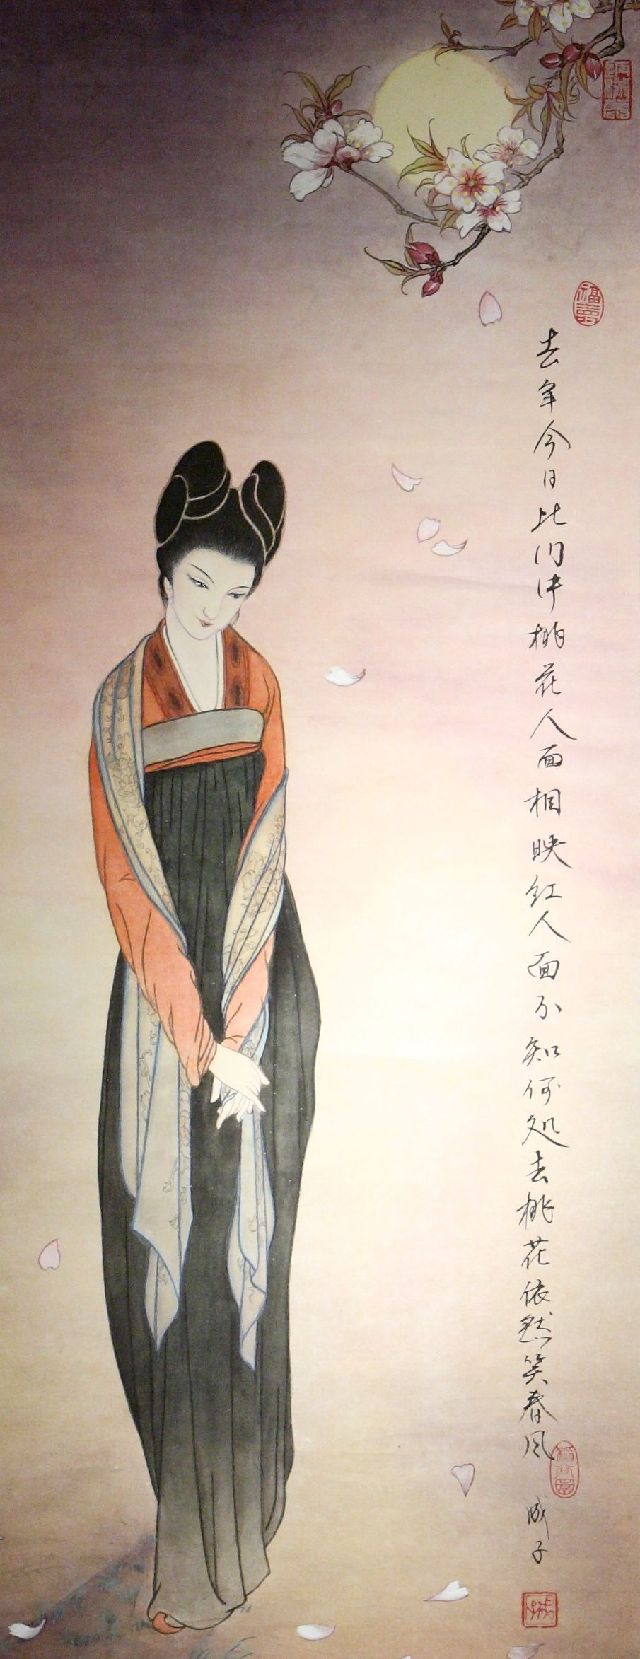 去年今日此门中桃花人面相映红人面不知何处去桃花依然笑春风
成子